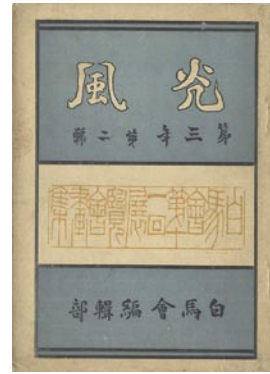 光風
第三年第二號
白馬會第回展覽會畫集
白馬會編輯部